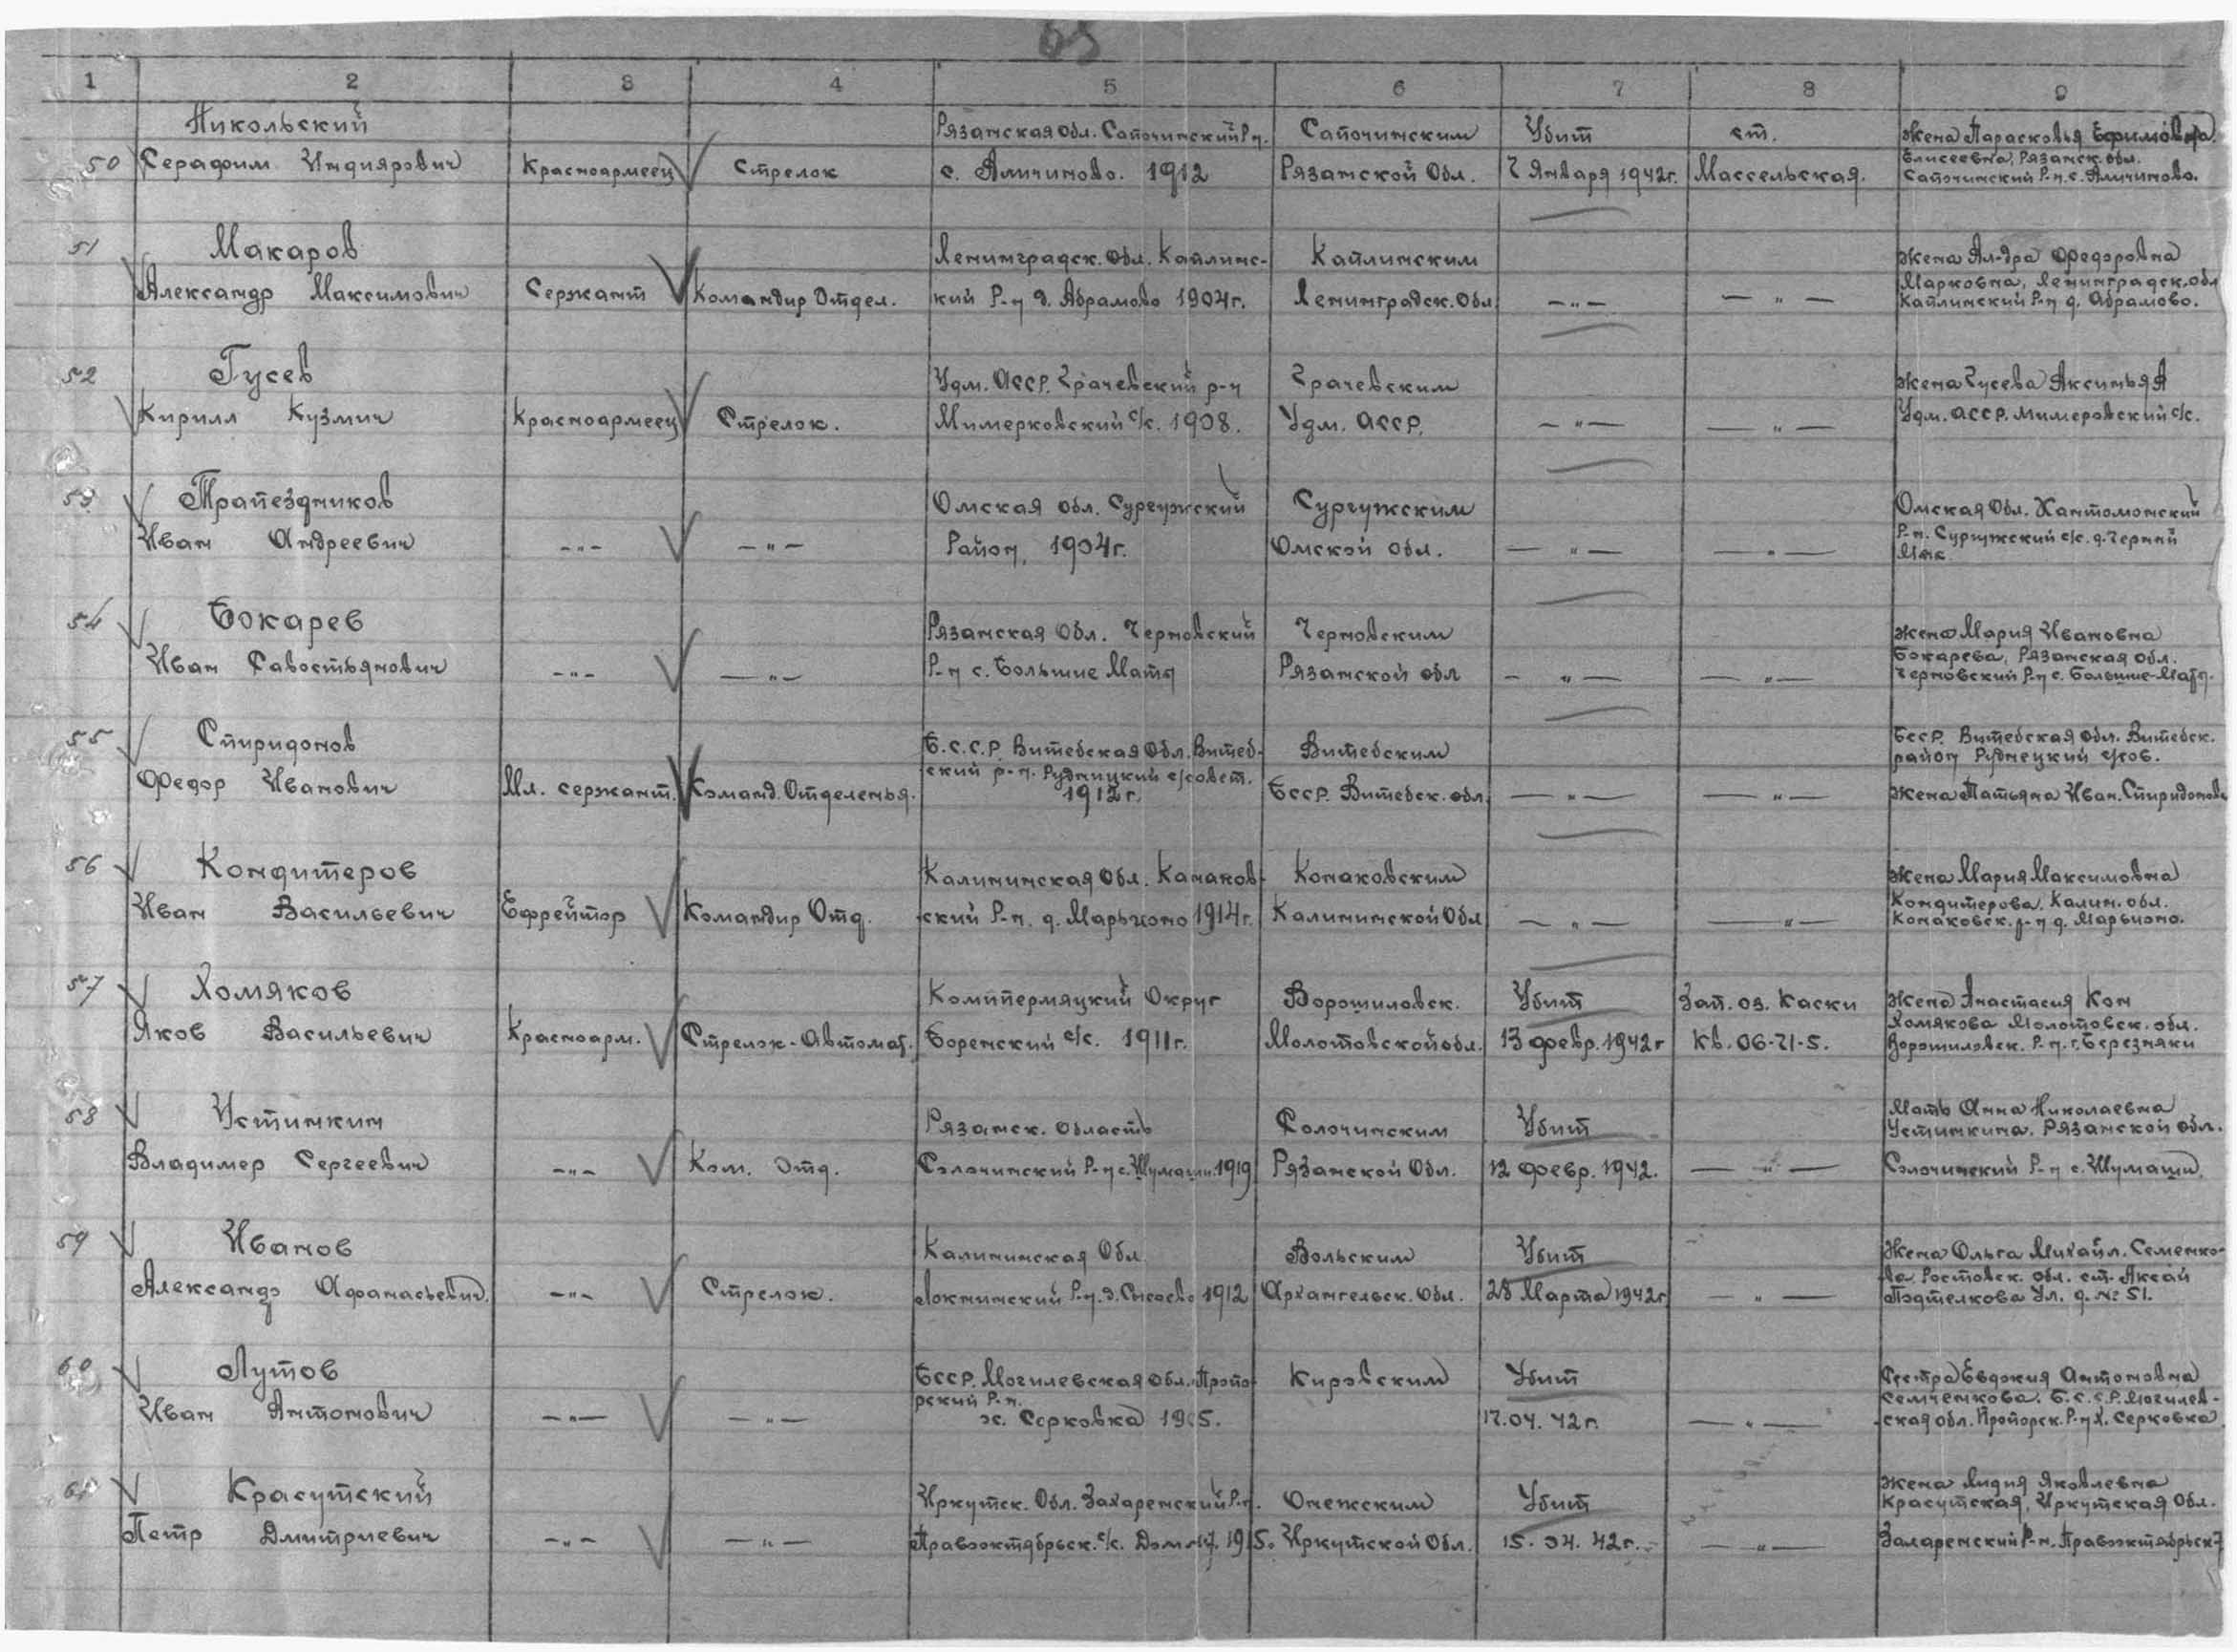 65
1 2 3 4 5 6 7 8 9
Никольский Рязанская обл. Сапочинский Р-н. Сапочинским Убит ст. Жена Парасковья Ефимовна
50 Серафим Индиярович Красноармеец Стрелок с. Аличиново. 1912 Рязанской Обл. 7 Января 1942г. Массельская. Елисеевна, Рязанск. обл.
Сапочинский Р-н. с. Аличиново.
51 Макаров Ленинградск. Обл. Каплинс- Каплинским Жена Ал-дра Федоровна
Александр Максимович Сержант Командир Отдел. кий Р-н д. Абрамово 1904г. Ленинградск. Обл. — " — — " — Марковна, Ленинградск. обл
Каплинский Р-н д. Абрамово.
52 Гусев Удм. АССР. Грачевский р-н Грачевским Жена Гусева Аксинья А
Кирилл Кузмич Красноармеец Стрелок. Мимерковский с/с. 1908. Удм. АССР. — " — — " — Удм. АССР. Мимеровский с/с.
53 Трапездников Омская обл. Сургужский Сургужским Омская Обл. Хантомонский
Иван Андреевич — " — — " — Район, 1904г. Омской Обл. — " — — " — Р-н. Сургужский с/с. д. Черный
Мяс
54 Бокарев Рязанская Обл. Черновский Черновским Жена Мария Ивановна
Иван Савостьянович — " — — " — Р-н с. Большие Матч Рязанской обл — " — — " — Бокарева, Рязанская обл.
Черновский Р-н с. Большие-Матч.
55 Спиридонов Б.С.С.Р. Витебская Обл. Витеб- Витебским БССР. Витебская Обл. Витебск.
Федор Иванович Мл. сержант. Команд. Отделенья. ский р-н. Рудницкий с/совет. БССР. Витебск. обл. — " — — " — район Руднецкий с/сов.
1912г. Жена Татьяна Иван. Спиридонов
56 Кондитеров Калининская Обл. Канаков- Конаковским Жена Мария Максимовна
Иван Васильевич Ефрейтор Командир Отд. ский Р-н. д. Марьионо 1914г. Калининской Обл — " — — " — Кондитерова, Калин. обл.
Конаковск. р-н д. Марьионо.
57 Хомяков Комипермяцкий Округ Ворошиловск. Убит Зап. оз. Каски Жена Анастасия Кон
Яков Васильевич Красноарм. Стрелок-Автомат. Боренский с/с. 1911г. Молотовской обл. 13 февр. 1942г Кв. 06-71-5. Хомякова Молотовск. обл.
Ворошиловск. Р-н. г. Березняки
58 Устинкин Рязанск. Область Солочинским Убит Мать Анна Николаевна
Владимер Сергеевич — " — Ком. Отд. Солочинский Р-н с. Шумаши. 1919 Рязанской Обл. 12 Февр. 1942. — " — Устинкина, Рязанской обл.
Солочинский Р-н с. Шумаши
59 Иванов Калининская Обл. Вольским Убит Жена Ольга Михайл. Семенко-
Александр Афанасьевич. — " — Стрелок. Локнинский Р-н. д. Сысоево 1912 Архангельск. Обл. 28 Марта 1942г. — " — ва Ростовск. обл. ст. Аксай
Подтелкова Ул. д. № 51.
60 Лутов БССР. Могилевская обл. Пропо- Кировским Убит Сестра Евдокия Антоновна
Иван Антонович — " — — " — рский Р-н. 17.04.42г. — " — Семченкова. Б.С.С.Р. Могилев-
х. Серковка 1905. ская обл. Пропорск. Р-н Х. Серковка
61 Красутский Иркутск. Обл. Захаренский Р-н. Онежским Убит Жена Лидия Яковлевна
Петр Дмитриевич — " — — " — Правооктябрьск. с/с. 1915. Иркутской Обл. 15.04.42г. — " — Красутская, Иркутская Обл.
Заларенский Р-н. Правооктябрьск